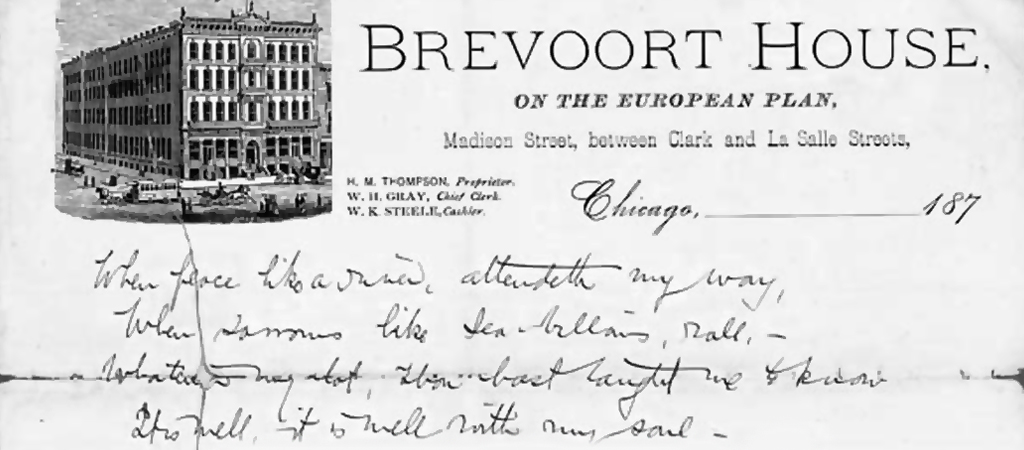 BREVOORT HOUSE.
ON THE EUROPEAN PLAN,
Madison Street, between Clark and La Salle Streets,
H. M. THOMPSON, Proprietor.
W. H. GRAY, Chief Clerk.
W. K. STEELE, Cashier.
Chicago, 187
When peace like a river, attendeth my way,
When sorrows like sea-billows, roll, –
Whatever my lot, Thou hast taught me to know
It is well, it is well with my soul –